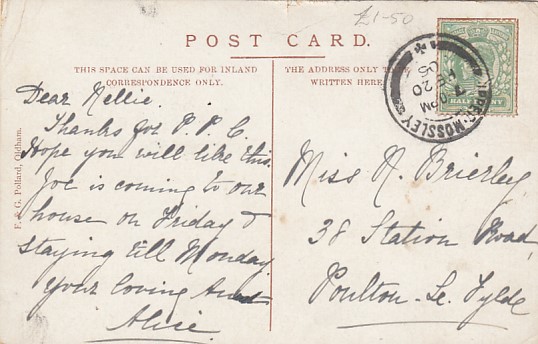 Nellie
£1-50
POST CARD.
THIS SPACE CAN BE USED FOR INLAND
CORRESPONDENCE ONLY.
THE ADDRESS ONLY TO
WRITTEN HERE
Dear Nellie.
Thanks for P.P.C.
Hope you will like this.
Joe is coming to our
house on Friday &
staying till Monday
Your loving Aunt
Alice.
F. & G. Pollard, Oldham.
UPPER MOSSLEY
7 PM
FE 20
05
HALFPENNY
Miss N. Brierley
38 Station Road
Poulton-Le-Fylde